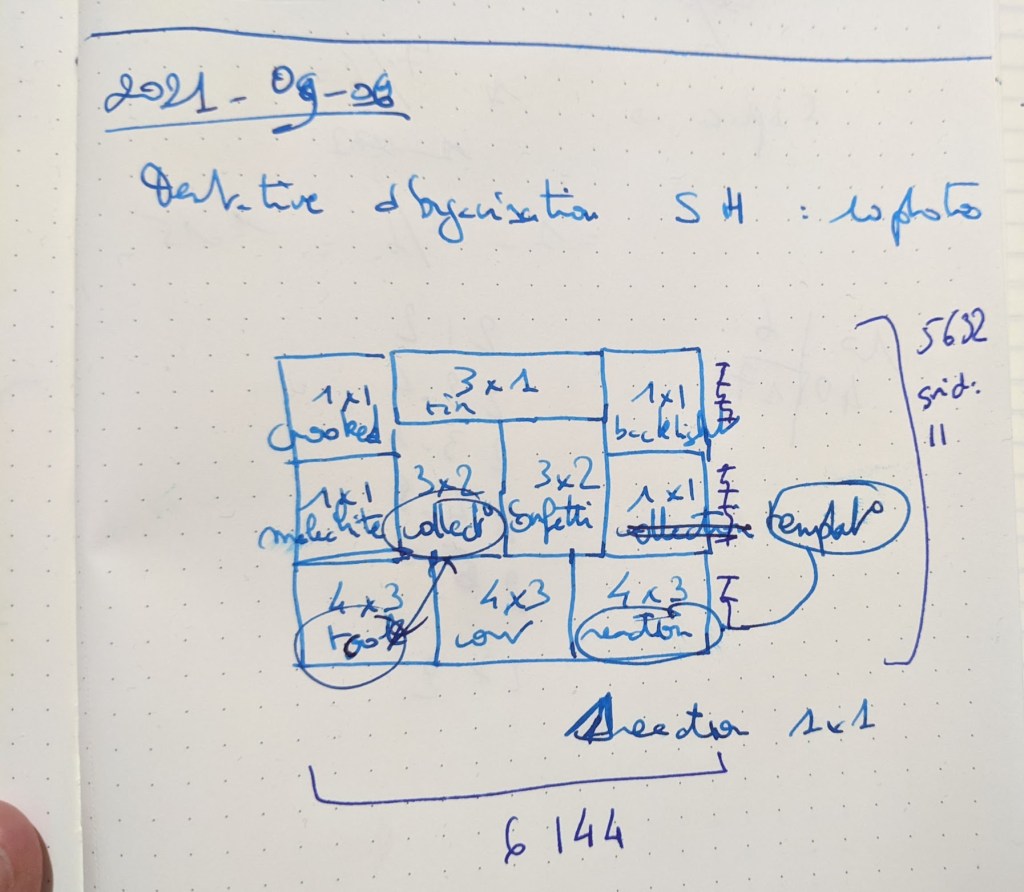 2021-09-08
Tentative d'organisation SH : 10 photos
1x1 3x1 1x1
crooked rin backlight
5632
grid:
11
1x1 3x2 3x2 1x1
malachite collect° confetti templat°
4x3 4x3 4x3
roots cour reaction
Direction 1x1
6144